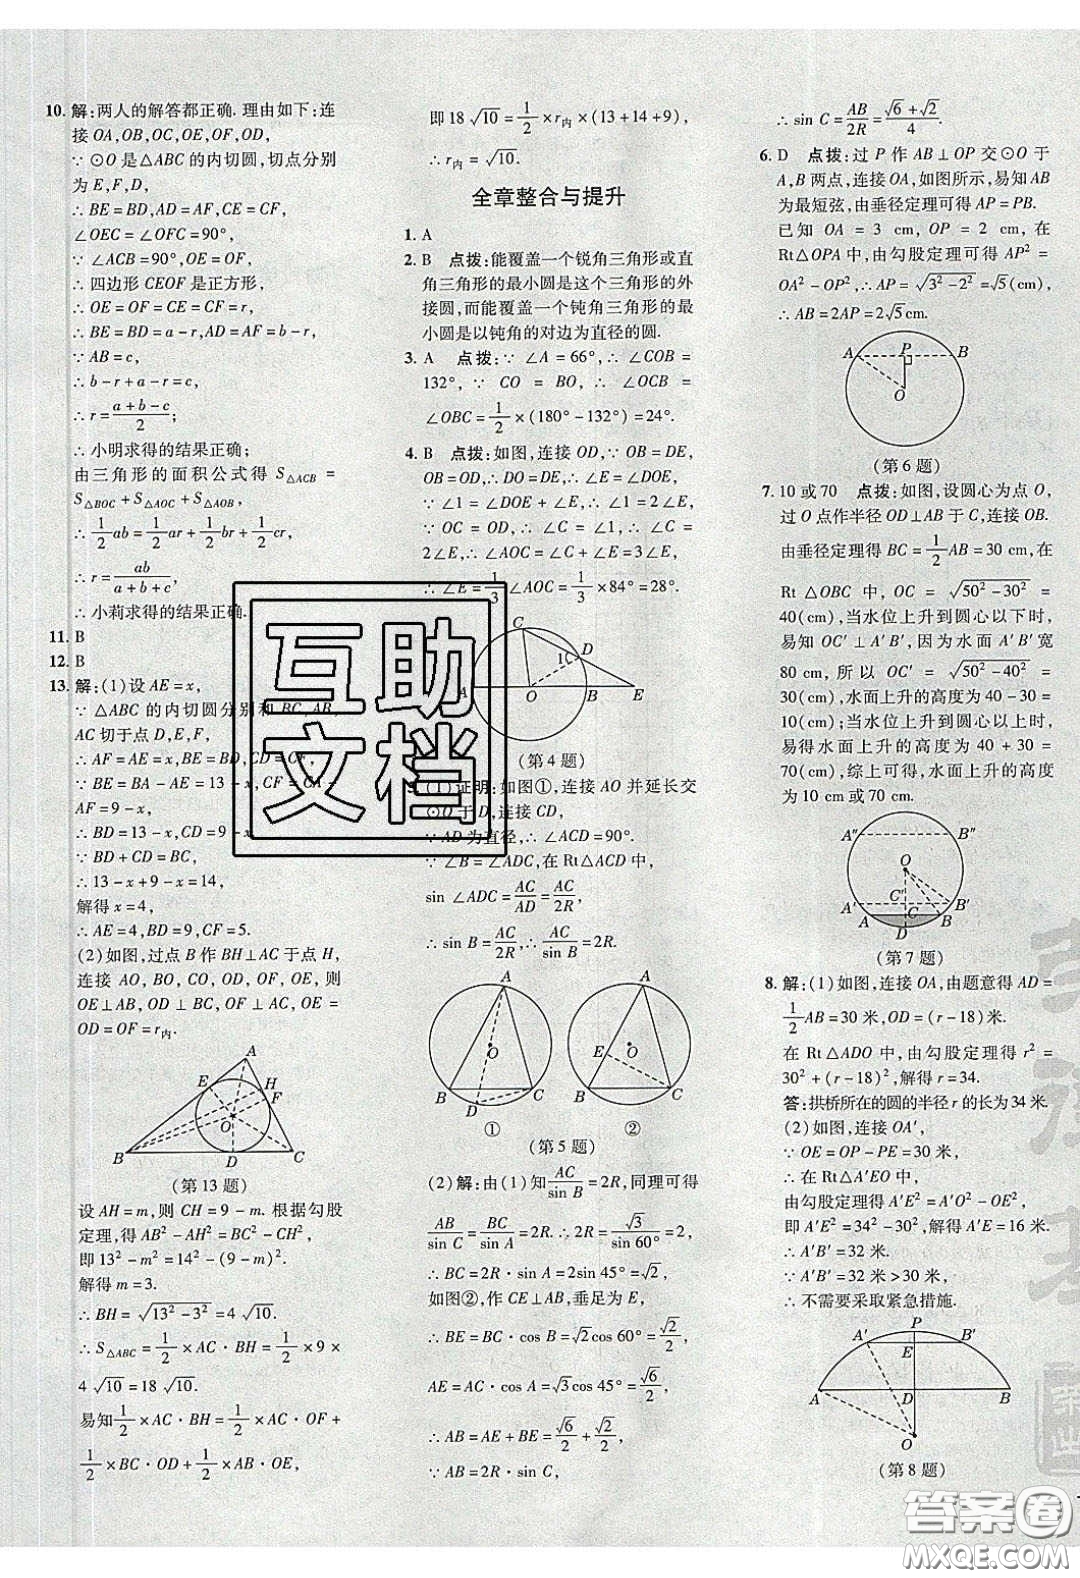 10. 解:两人的解答都正确. 理由如下:连
接 OA,OB,OC,OE,OF,OD,
∵ ⊙O 是△ABC 的内切圆,切点分别
为 E,F,D,
∴ BE = BD,AD = AF,CE = CF,
∠OEC = ∠OFC = 90°,
∵ ∠ACB = 90°,OE = OF,
∴ 四边形 CEOF 是正方形,
∴ OE = OF = CE = CF = r,
∴ BE = BD = a - r,AF = AD = b - r,
∵ AB = c,
∴ b - r + a - r = c,
∴ r = (a + b - c)/2;
∴ 小明求得的结果正确.
由三角形的面积公式得 S△ACB =
S△BOC + S△AOC + S△AOB,
∴ 1/2 ab = 1/2 ar + 1/2 br + 1/2 cr,
∴ r = ab/(a + b + c);
∴ 小莉求得的结果正确.
11. B
12. B
13. 解:(1)设 AE = x,
∵ △ABC 的内切圆分别和 BC,AB,
AC 切于点 D,E,F,
∴ AF = AE = x,BE = BD,CF = CD,
∵ BE = BA - AE = 13 - x,CF = CA -
AF = 9 - x,
∴ BD = 13 - x,CD = 9 - x,
∵ BD + CD = BC,
∴ 13 - x + 9 - x = 14,
解得 x = 4,
∴ AE = 4,BD = 9,CF = 5.
(2)如图,过点 B 作 BH⊥AC 于点 H,
连接 AO, BO, CO, OD, OF, OE, 则
OE⊥AB,OD⊥BC,OF⊥AC,OE =
OD = OF = r内.
A
E
H
F
O
B
D
C
(第 13 题)
设 AH = m,则 CH = 9 - m. 根据勾股
定理,得 AB² - AH² = BC² - CH²,
即 13² - m² = 14² - (9 - m)².
解得 m = 3.
∴ BH = √(13² - 3²) = 4√10.
∴ S△ABC = 1/2 × AC · BH = 1/2 × 9 ×
4√10 = 18√10.
易知 1/2 × AC · BH = 1/2 × AC · OF +
1/2 × BC · OD + 1/2 × AB · OE,
即 18√10 = 1/2 × r内 × (13 + 14 + 9),
∴ r内 = √10.
全章整合与提升
1. A
2. B 点拨:能覆盖一个锐角三角形或直
角三角形的最小圆是这个三角形的外
接圆,而能覆盖一个钝角三角形的最
小圆是以钝角的对边为直径的圆.
3. A 点拨: ∵ ∠A = 66°, ∴ ∠COB =
132°, ∵ CO = BO, ∴ ∠OCB =
∠OBC = 1/2 × (180° - 132°) = 24°.
4. B 点拨:如图,连接 OD,∵ OB = DE,
OB = OD,∴ DO = DE,∴ ∠E = ∠DOE,
∵ ∠1 = ∠DOE + ∠E,∴ ∠1 = 2∠E,
∵ OC = OD, ∴ ∠C = ∠1, ∴ ∠C =
2∠E,∴ ∠AOC = ∠C + ∠E = 3∠E,
∴ ∠E = 1/3 ∠AOC = 1/3 × 84° = 28°.
C
D
1
A
O
B
E
(第 4 题)
(1)证明:如图①,连接 AO 并延长交
⊙O 于 D,连接 CD,
∵ AD 为直径,∴ ∠ACD = 90°.
∵ ∠B = ∠ADC,在 Rt△ACD 中,
sin ∠ADC = AC/AD = AC/2R,
∴ sin B = AC/2R,∴ AC/sin B = 2R.
A
O
B
C
D
①
A
E
O
B
C
②
(第 5 题)
(2)解:由(1)知 AC/sin B = 2R,同理可得
AB/sin C = BC/sin A = 2R. ∴ 2R = √3/sin 60° = 2,
∴ BC = 2R · sin A = 2sin 45° = √2,
如图②,作 CE⊥AB,垂足为 E,
∴ BE = BC · cos B = √2cos 60° = √2/2,
AE = AC · cos A = √3cos 45° = √6/2,
∴ AB = AE + BE = √6/2 + √2/2,
∵ AB = 2R · sin C,
∴ sin C = AB/2R = (√6 + √2)/4.
6. D 点拨:过 P 作 AB⊥OP 交⊙O 于
A,B 两点,连接 OA,如图所示,易知 AB
为最短弦,由垂径定理可得 AP = PB.
已知 OA = 3 cm, OP = 2 cm, 在
Rt△OPA 中,由勾股定理可得 AP² =
OA² - OP²,∴ AP = √(3² - 2²) = √5(cm),
∴ AB = 2AP = 2√5cm.
A
P
B
O
(第 6 题)
7. 10 或 70 点拨:如图,设圆心为点 O,
过 O 点作半径 OD⊥AB 于 C,连接 OB.
由垂径定理得 BC = 1/2 AB = 30 cm,在
Rt△OBC 中, OC = √(50² - 30²) =
40(cm),当水位上升到圆心以下时,
易知 OC′⊥A′B′, 因为水面 A′B′宽
80 cm, 所以 OC′ = √(50² - 40²) =
30(cm),水面上升的高度为 40 - 30 =
10(cm);当水位上升到圆心以上时,
易得水面上升的高度为 40 + 30 =
70(cm),综上可得,水面上升的高度
为 10 cm 或 70 cm.
A″
B″
O
C′
A′
B′
C
A
B
D
(第 7 题)
8. 解:(1)如图,连接 OA,由题意得 AD =
1/2 AB = 30 米,OD = (r - 18)米.
在 Rt△ADO 中,由勾股定理得 r² =
30² + (r - 18)²,解得 r = 34.
答:拱桥所在的圆的半径 r 的长为 34 米.
(2)如图,连接 OA′,
∵ OE = OP - PE = 30 米,
∴ 在 Rt△A′EO 中,
由勾股定理得 A′E² = A′O² - OE²,
即 A′E² = 34² - 30²,解得 A′E = 16 米.
∴ A′B′ = 32 米.
∵ A′B′ = 32 米 > 30 米,
∴ 不需要采取紧急措施.
P
A′
E
B′
A
D
B
O
(第 8 题)
互助
文档
答案圈
MXQE.COM